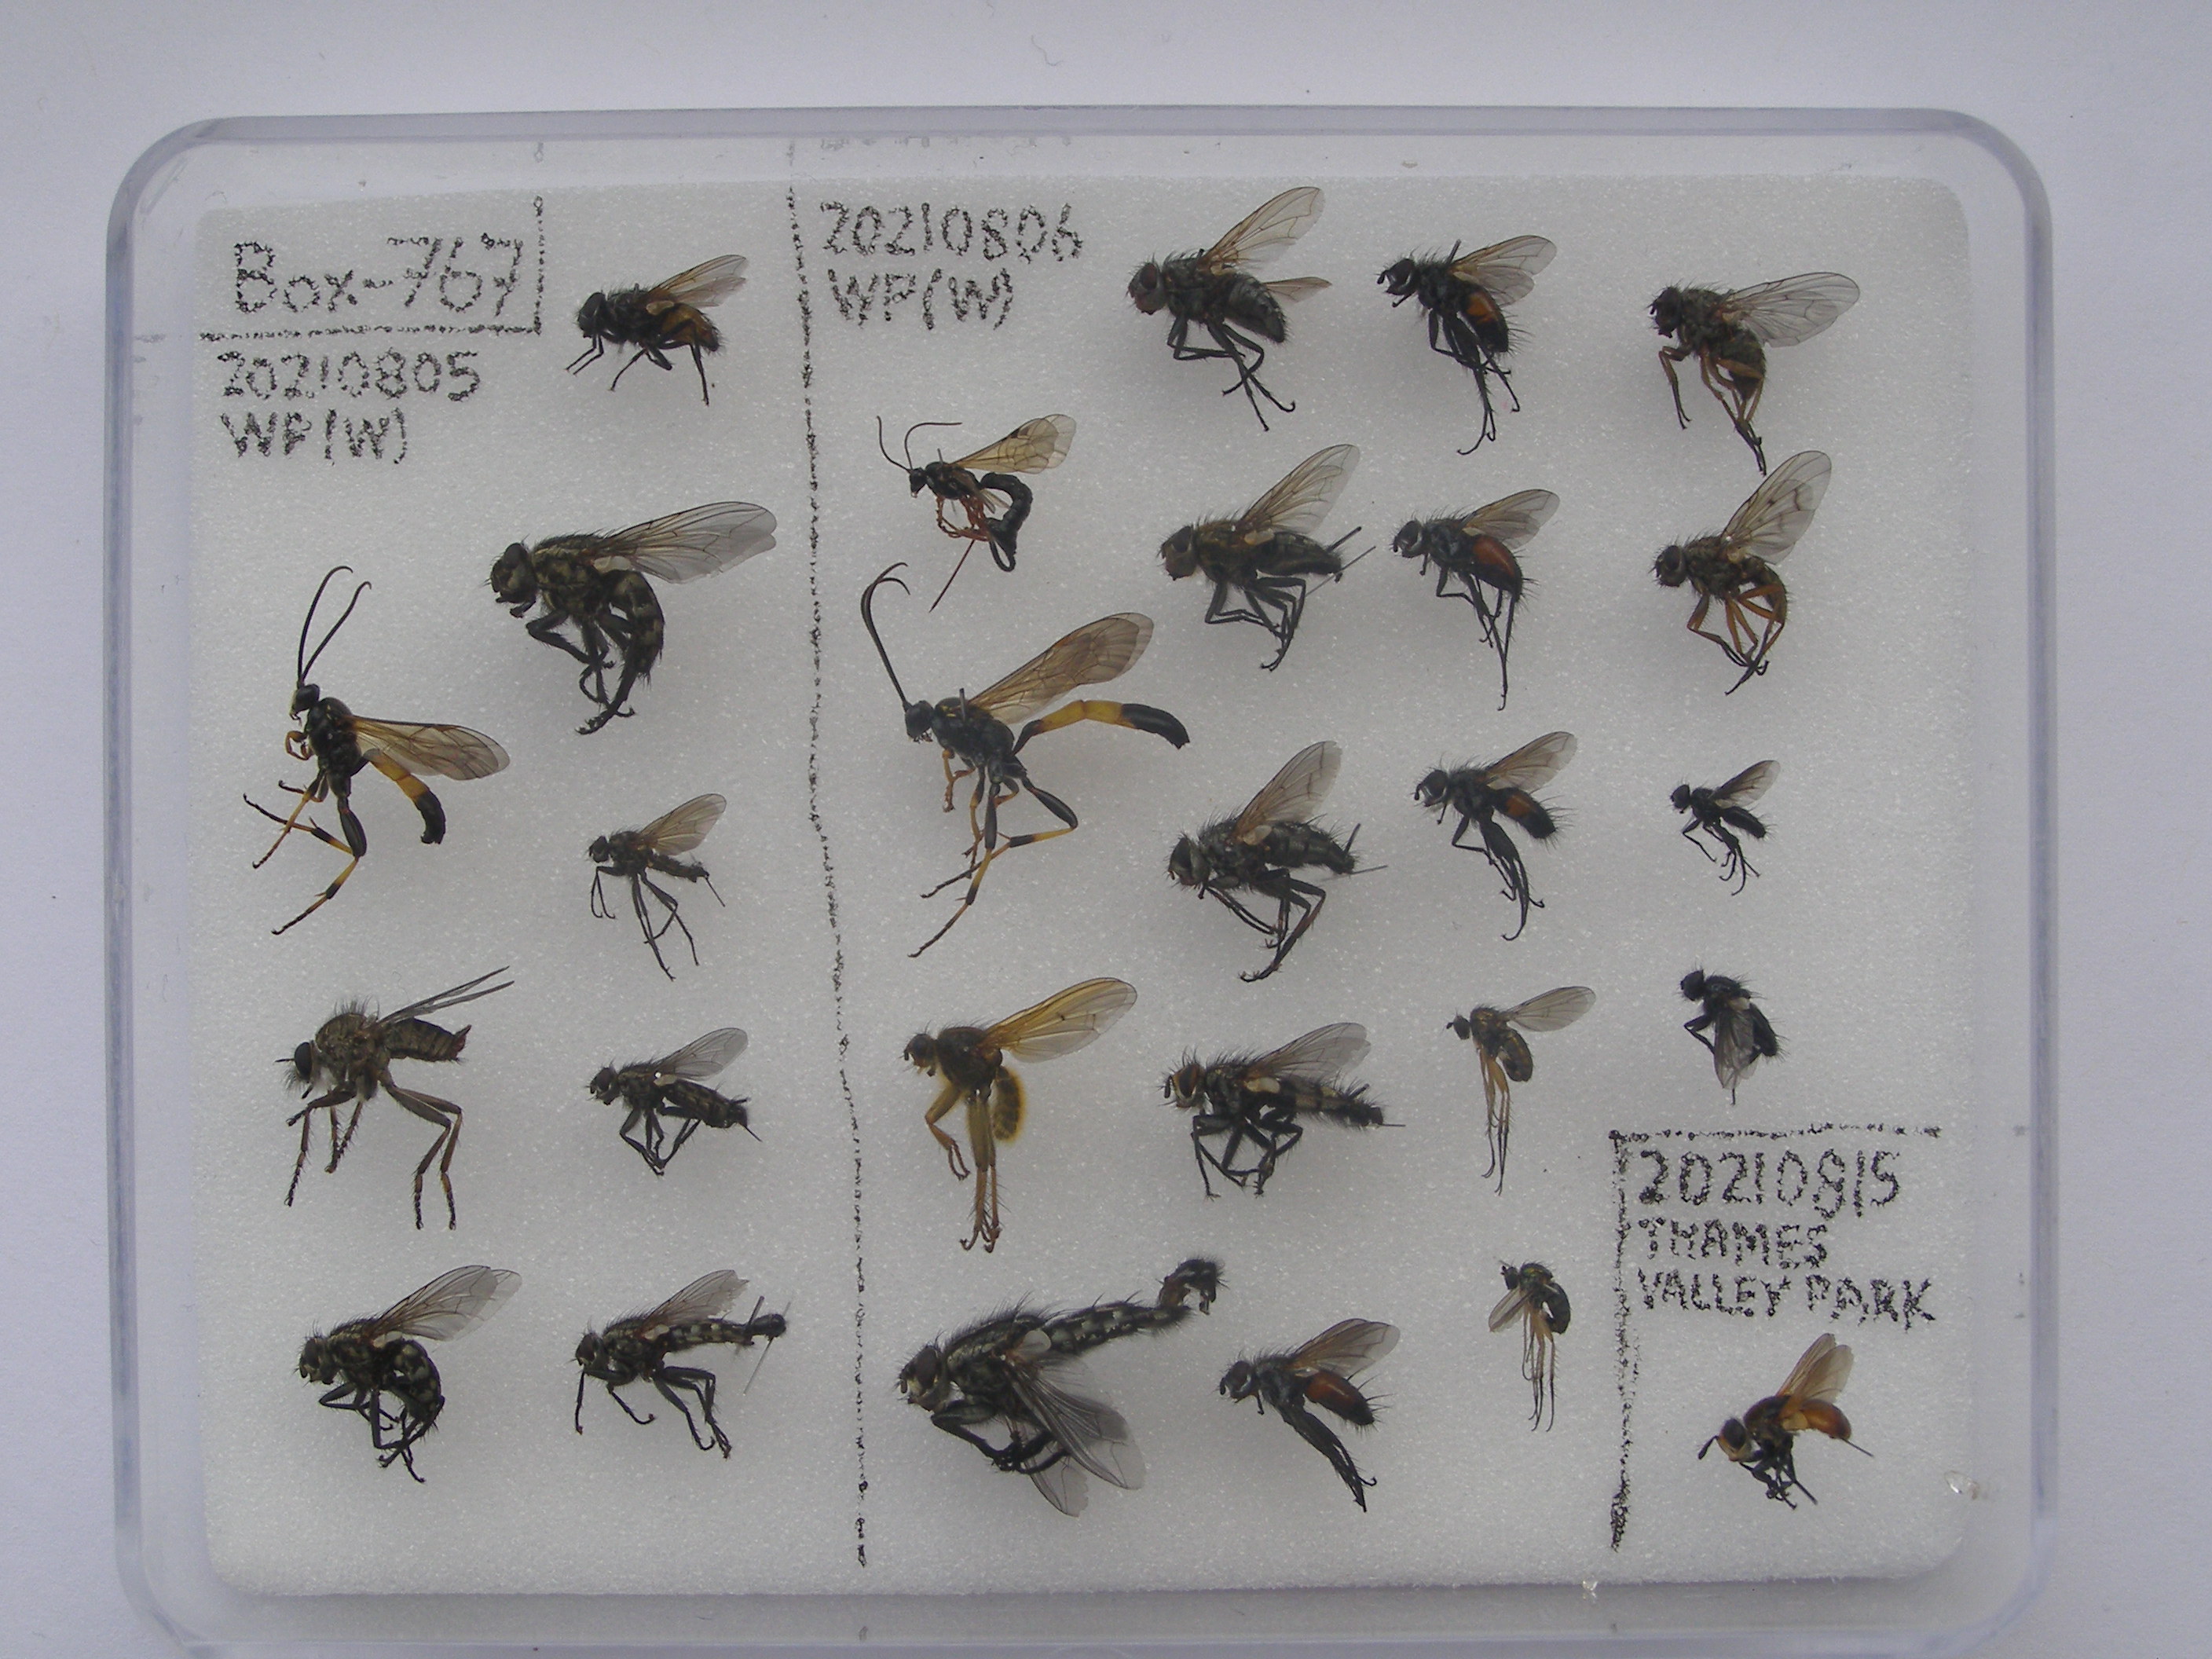 Box-767
20210805
WP(W)
20210806
WP(W)
20210815
THAMES
VALLEY PARK